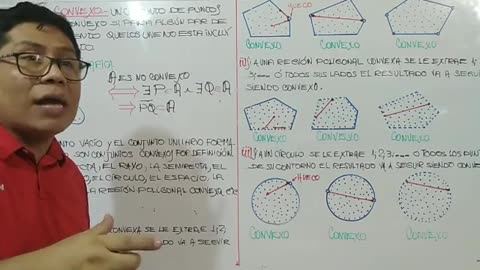 CONVEXO.- UN CONJUNTO DE PUNTOS
CONVEXO SI PARA ALGÚN PAR DE
QUE LOS UNE NO ESTA INCLU
GRÁFICA
A ES NO CONVEXO
⇔ ∃P ∈ A ∧ ∃Q ∈ A
⇒ PQ ⊂ A
VACÍO Y EL CONJUNTO UNITARIO FORMA
SON CONJUNTOS CONVEXO POR DEFINICIÓN
EL RAYO, LA SEMIRECTA, EL
EL CÍRCULO, EL ESPACIO, LA
LA REGIÓN POLIGONAL CONVEXA, ETC
CONVEXA SE LE EXTRAE 1; 2;
VA A SEGUIR
HUECO
CONVEXO CONVEXO CONVEXO
ii) A UNA REGIÓN POLIGONAL CONVEXA SE LE EXTRAE 1;
2; 3; .... Ó TODOS SUS LADOS EL RESULTADO VA A SEGUIR
SIENDO CONVEXO.
CONVEXO CONVEXO CONVEXO
iii) A UN CÍRCULO SE LE EXTRAE 1; 2; 3; .... Ó TODOS LOS PUNTOS
DE SU CONTORNO EL RESULTADO VA A SEGUIR SIENDO CONVEXO
HUECO
CONVEXO CONVEXO CONVEXO